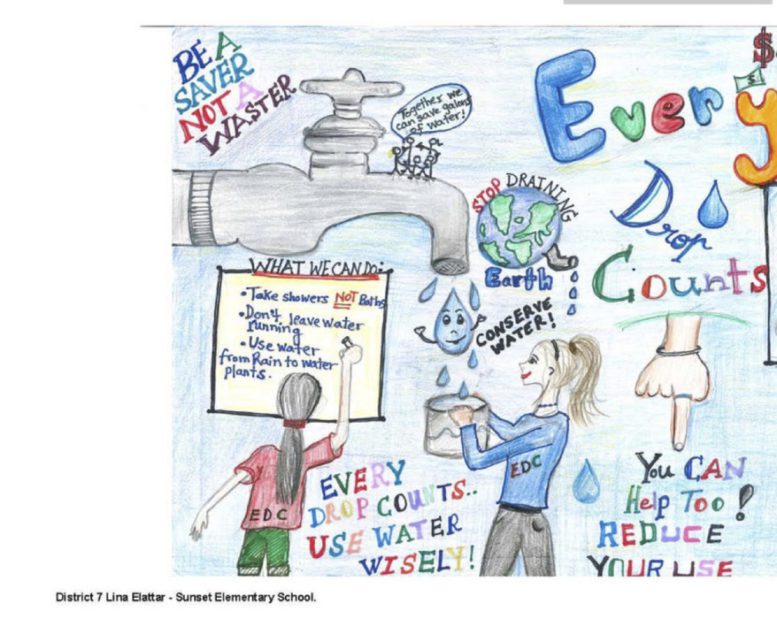 BE A
SAVER
NOT A
WASTER
Together we
can save galons
of water!
$
$
Every
Drop
Counts
STOP DRAINING
Earth
CONSERVE
WATER!
WHAT WE CAN DO:
• Take showers NOT Baths
• Don't leave water
running
• Use water
from Rain to water
plants.
EDC
EDC
EVERY
DROP COUNTS..
USE WATER
WISELY!
You CAN
Help Too!
REDUCE
YOUR USE
District 7 Lina Elattar - Sunset Elementary School.